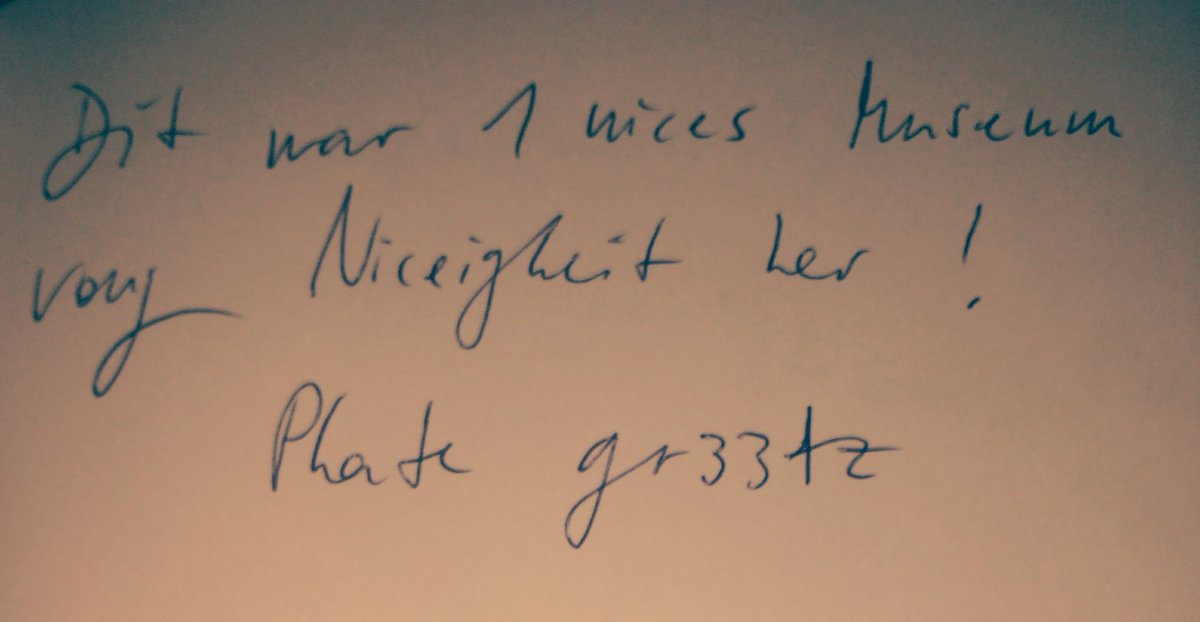 Dit war 1 nices Museum
vong Niceigheit her !
Phate gr33tz